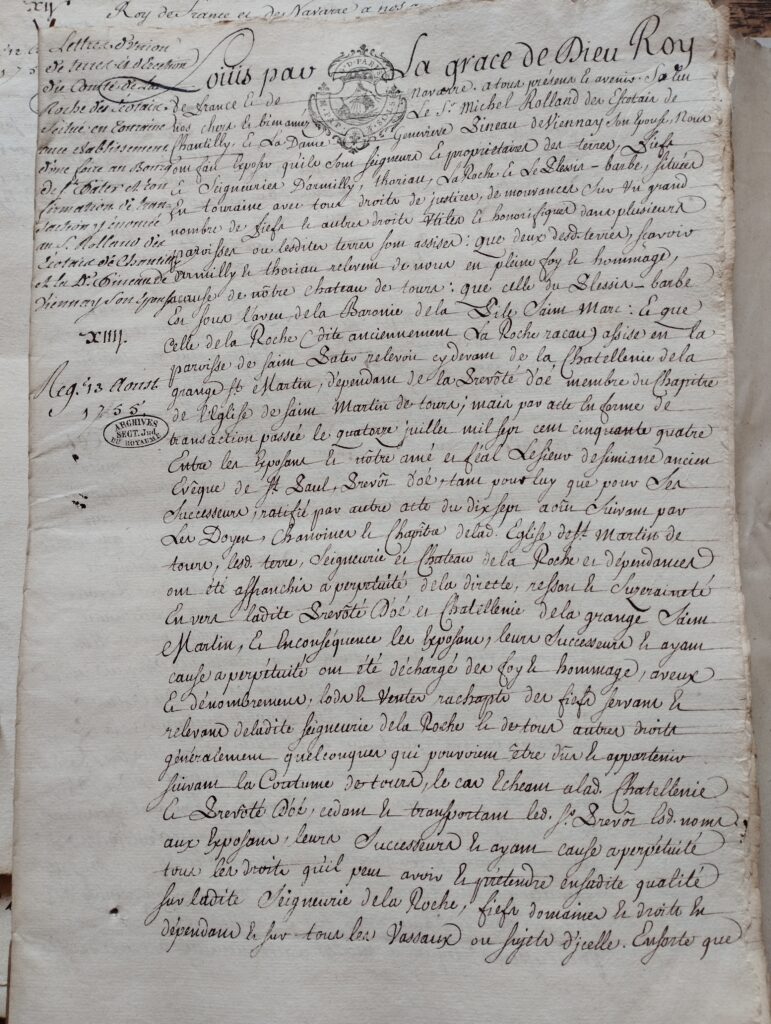 XIJ
Roy de France et de Navarre a nos
Lettres d'union
de terres et d'erection
du Comté de la
Roche des Ecotais
scitué en Touraine
avec etablissement
d'une foire au Bourg
de St. Pater et con
firmation de tran-
saction y énoncée
au Sr. Rolland des
Ecotais de Chantilly
et a la De. Pineau de
Viennay son Epouse
XIIIJ.
Reg. 13 Aoust
1755
ARCHIVES
SECT. Jud.
DU ROYAUME
Louis par la grace de Dieu Roy
de france et de Navarre. a tous présens et avenir. Salut
nos chers et bien amez Le Sr. Michel Rolland des Escotais de
Chantilly et La Dame Geneviève Pineau de Viennay son Epouse, Nous
ont fait Exposer qu'ils sont seigneurs et propriétaires des terres, fiefs
et Seigneuries D'armilly, thoriau, La Roche et Le Plessis-barbe, situées
En touraine avec tous droits de justices, de mouvances sur un grand
nombre de fiefs et autres droits utiles et honorifiques dans plusieurs
parroisses ou lesdites terres sont assises : que deux desd. terres, sçavoir
D'armilly et thoriau relevent de nous en pleine foy et hommage,
a cause de nôtre chateau de tours : que celle du Plessis-barbe
Est sous l'aveu de la Baronie de la Saint Marc : Et que
Celle de la Roche (dite anciennement La Roche racau) assise en la
parroisse de saint Pater relevoit cy devant de la Chatellenie de la
grange St. Martin, dépendant de la Prevôté d'oé membre du Chapitre
de l'Eglise de saint Martin de tours; mais par acte en forme de
transaction passée le quatorze juillet mil sept cent cinquante quatre
Entre les Exposans et nôtre amé et féal Le sieur de simiane ancien
Evêque de St. Paul, Prevôt d'oé, tant pour luy que pour ses
Successeurs, ratifié par autre acte du dix sept aoust suivant par
Les Doyen, Chanoines et Chapitre de lad. Eglise de St. Martin de
tours, lesd. terre, Seigneurie et Chateau de la Roche et dépendances
ont été affranchis a perpétuité de la directe, ressort et suzeraineté
En vers ladite Prevôté D'oé et Chatellenie de la grange Saint
Martin, et En conséquence les Exposans, leurs Successeurs et ayant
cause a perpétuité ont été déchargé des foy et hommage, aveux
Et dénombremens, lods et ventes rachapts des fiefs servant et
relevans de ladite seigneurie de la Roche et de tous autres droits
généralement quelconques qui pouvoient être dus et appartenir
suivant la Coutume de tours, le cas Echeant a lad. Chatellenie
Et Prevôté D'oé, cedant et transportant led. Sr. Prevôt Esd. noms
aux Exposans, leurs Successeurs et ayant cause a perpétuité
tous les droits qu'il peut avoir et prétendre en sadite qualité
sur ladite Seigneurie de la Roche, fiefs domaines et droits En
dépendans et sur tous les Vassaux ou sujets d'jcelle. Ensorte que